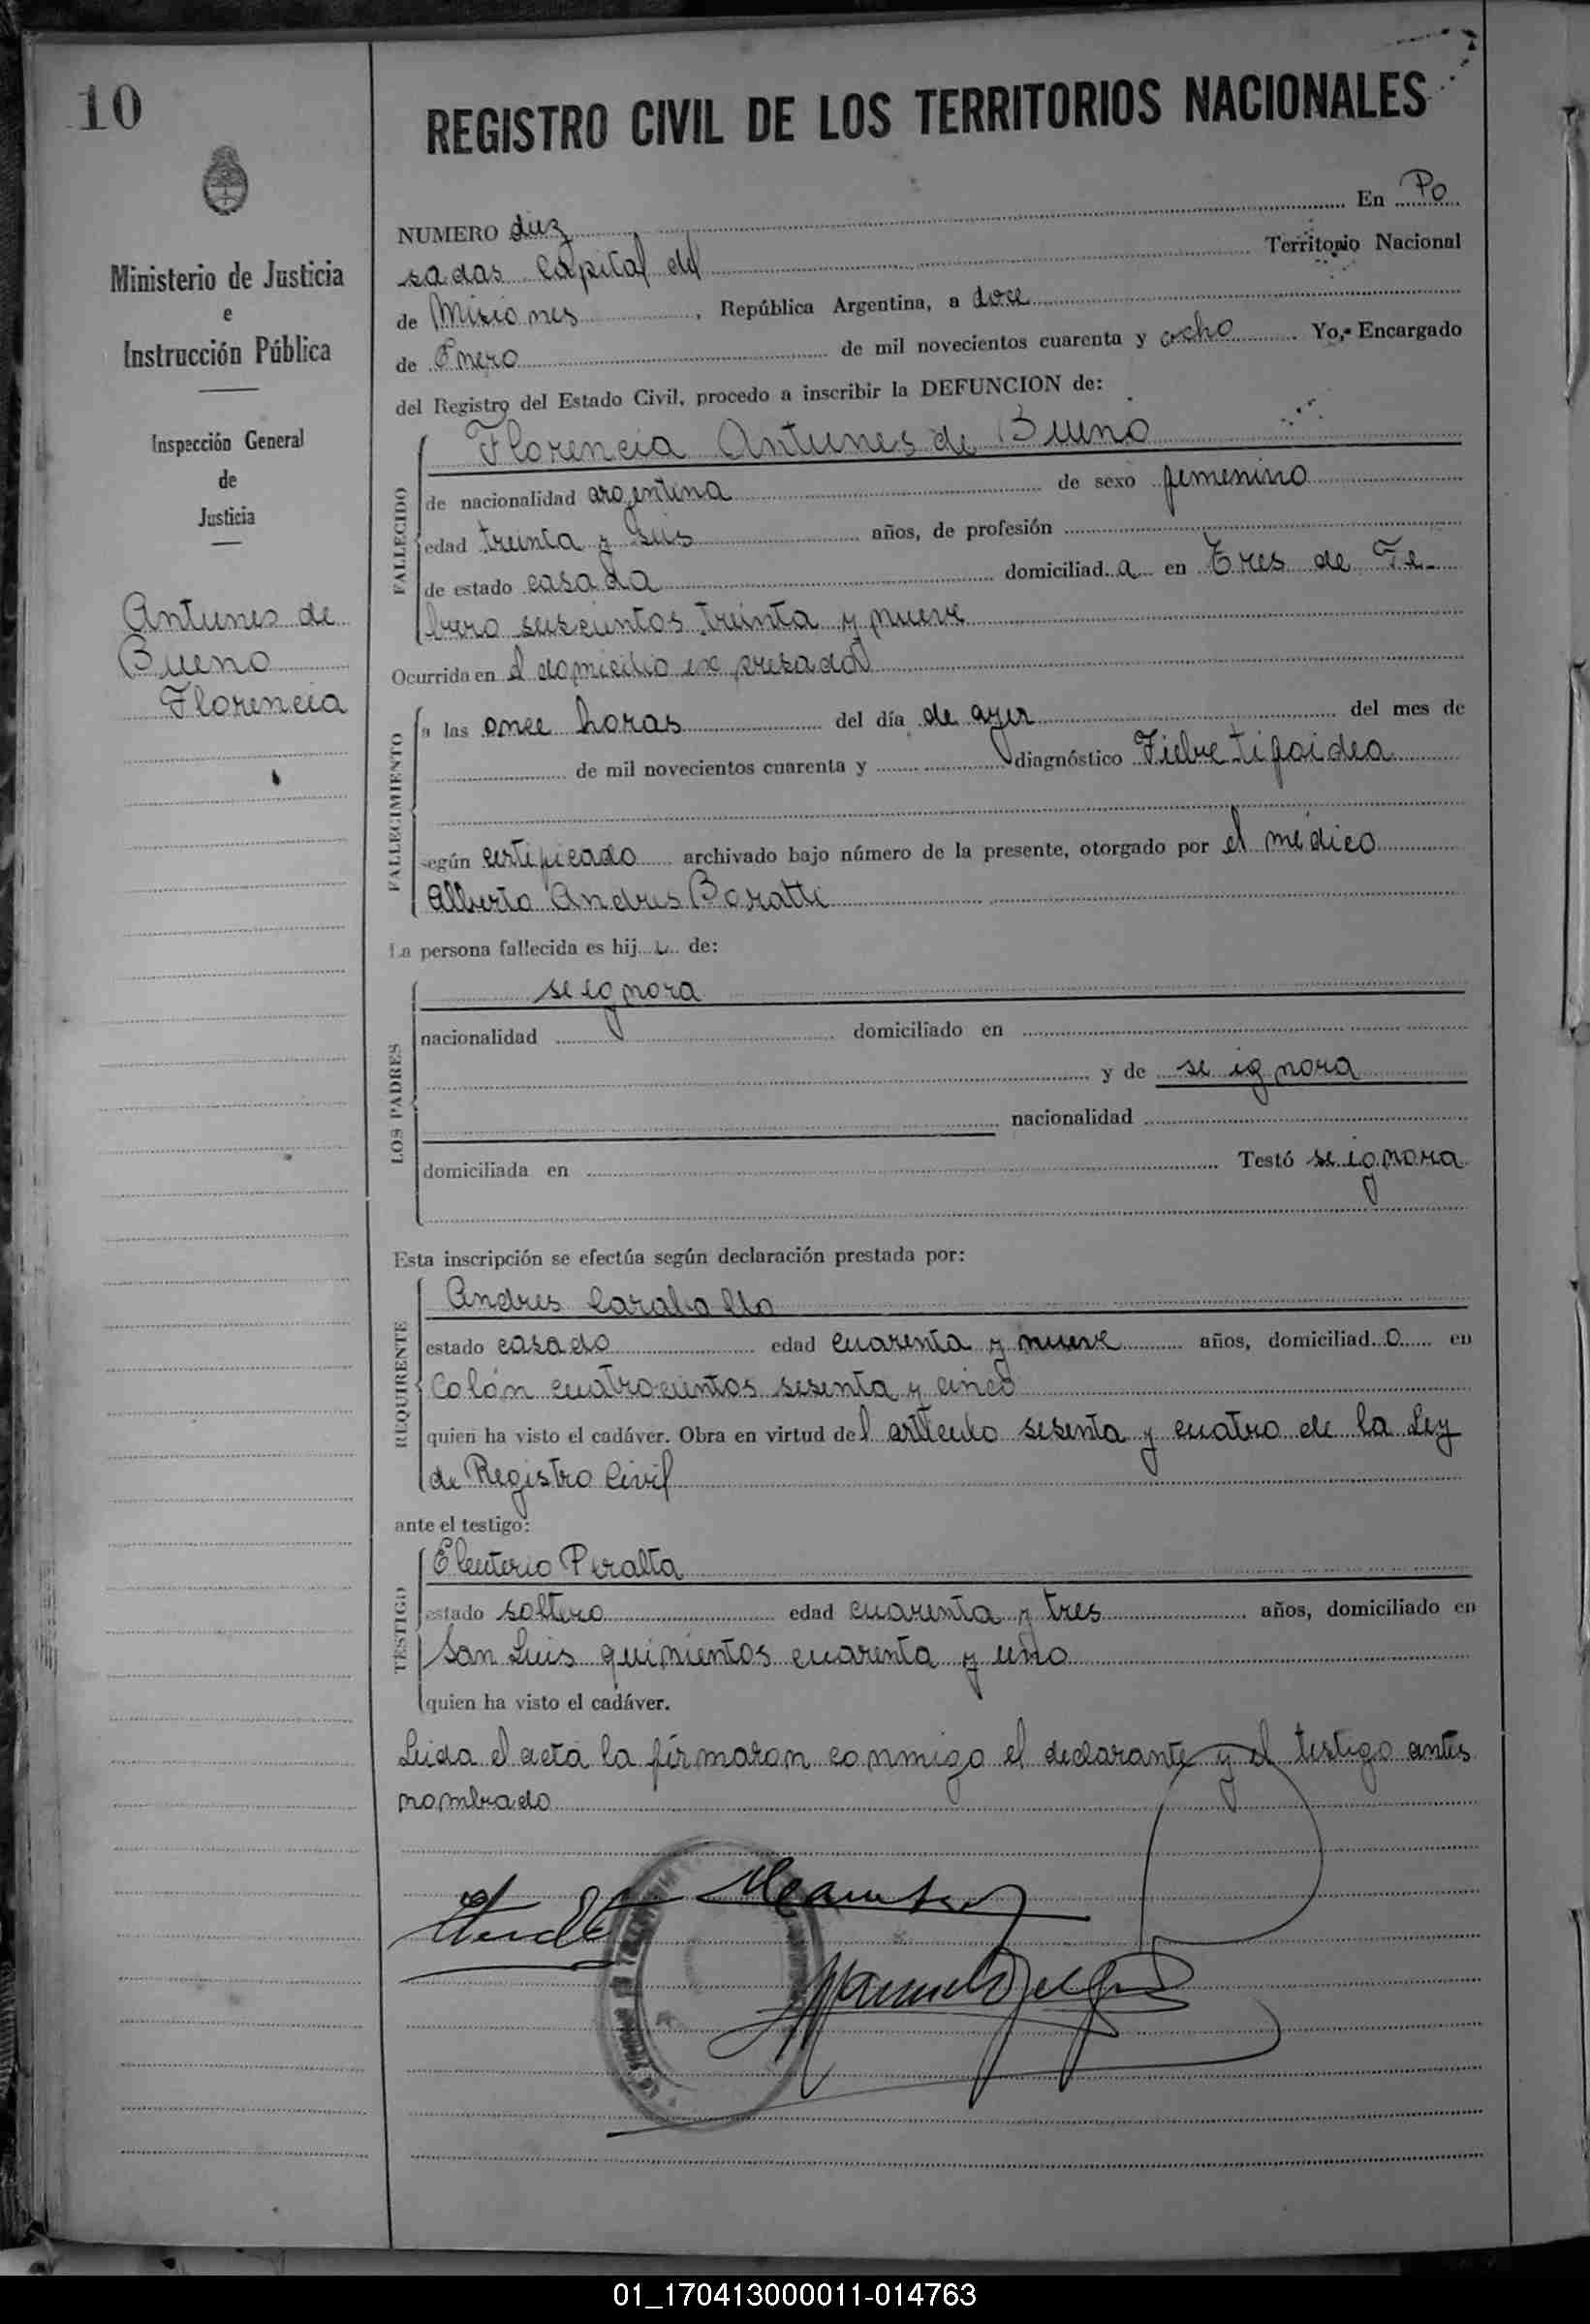 10
Ministerio de Justicia
e
Instrucción Pública
Inspección General
de
Justicia
Antunes de
Bueno
Florencia
REGISTRO CIVIL DE LOS TERRITORIOS NACIONALES
NUMERO diez En Po
sadas Capital del Territorio Nacional
de Misiones, República Argentina, a doce
de Enero de mil novecientos cuarenta y ocho Yo,- Encargado
del Registro del Estado Civil, procedo a inscribir la DEFUNCION de:
FALLECIDO
Florencia Antunes de Bueno
de nacionalidad argentina de sexo femenino
edad treinta y seis años, de profesión
de estado casada domiciliad a en Tres de Fe-
brero seiscientos treinta y nueve
Ocurrida en el domicilio expresado
FALLECIMIENTO
a las once horas del día de ayer del mes de
de mil novecientos cuarenta y diagnóstico Fiebre tifoidea
según certificado archivado bajo número de la presente, otorgado por el médico
Alberto Andres Boratti
La persona fallecida es hij a de:
LOS PADRES
se ignora
nacionalidad domiciliado en
y de se ignora
nacionalidad
domiciliada en Testó se ignora
Esta inscripción se efectúa según declaración prestada por:
REQUIRENTE
Andres Caraballo
estado casado edad cuarenta y nueve años, domiciliad o en
Colón cuatrocientos sesenta y cinco
quien ha visto el cadáver. Obra en virtud del artículo sesenta y cuatro de la Ley
de Registro Civil
ante el testigo:
TESTIGO
Eleuterio Peralta
estado soltero edad cuarenta y tres años, domiciliado en
San Luis quinientos cuarenta y uno
quien ha visto el cadáver.
Leida el acta la firmaron conmigo el declarante y el testigo antes
nombrado
01_170413000011-014763